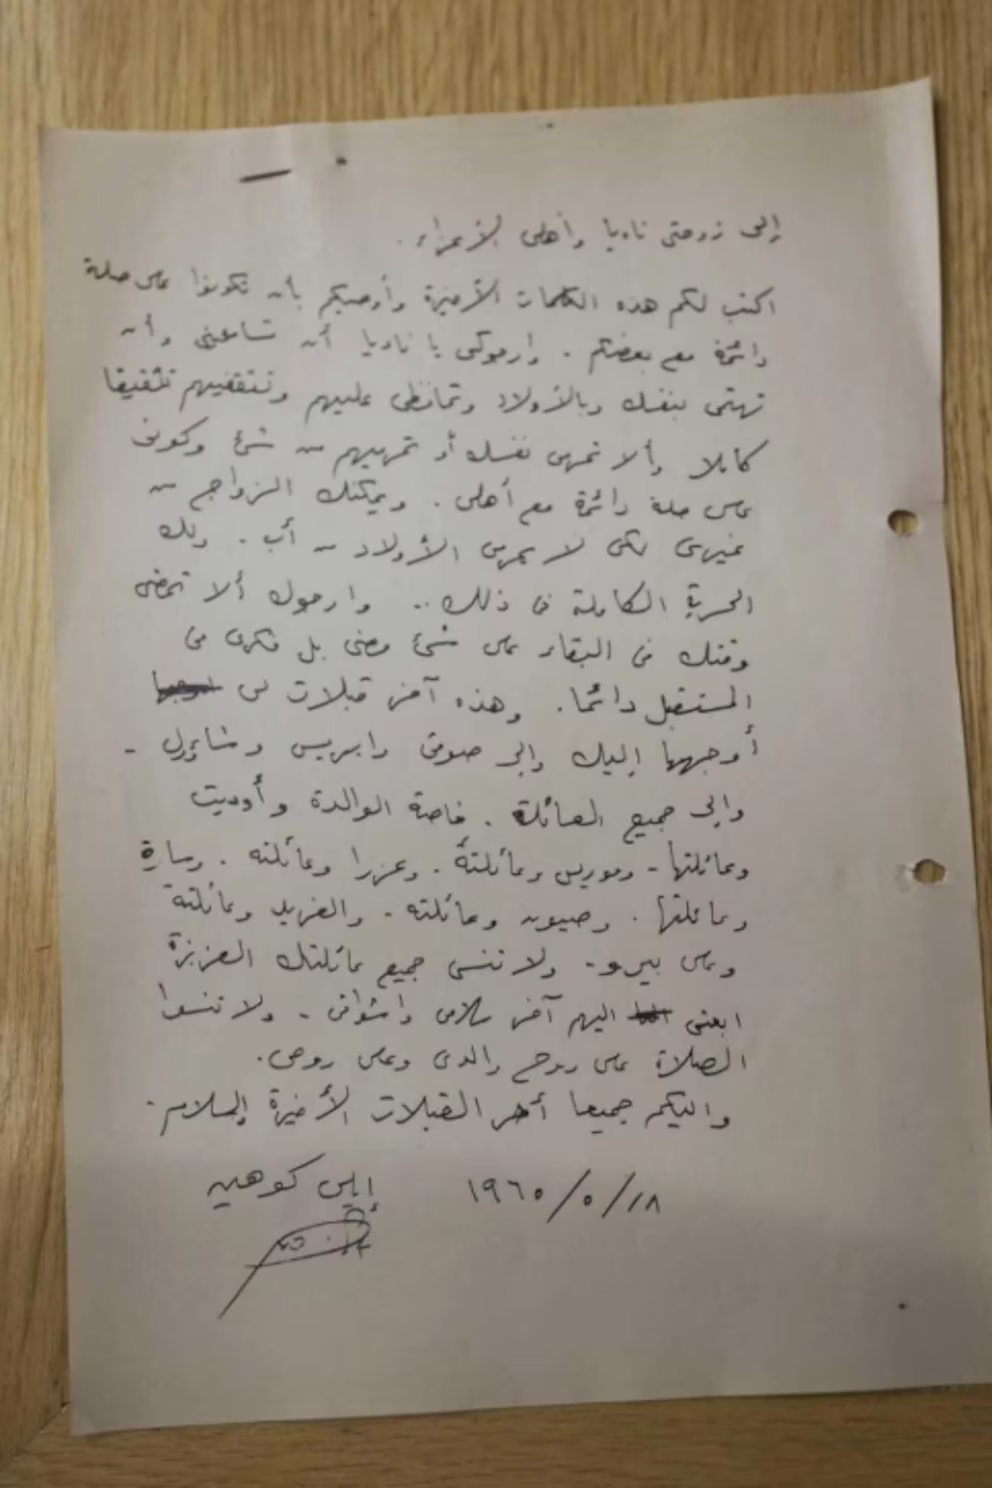 إلى زوجتي ناديا وأهلي الأعزاء .
اكتب لكم هذه الكلمات الأخيرة وأوصيكم بأن تكونوا على صلة
دائمة مع بعضكم . وارجوكي يا ناديا أن تسامحيني وأن
تهتمي بنفسك وبالأولاد وتحافظي عليهم وتثقفيهم تثقيفا
كاملا وألا تحرمي نفسك أو تحرميهم من شئ وكوني
على صلة دائمة مع أهلي . ويمكنك الزواج من
غيري لكي لا يحرم الأولاد من أب . ولك
الحرية الكاملة في ذلك .. وارجوك ألا تمضي
وقتك في البكاء على شئ مضى بل فكري في
المستقبل دائما . وهذه آخر قبلات لي
أوجهها إليك وإلى صوفي وايريس وشاؤول -
وإلى جميع العائلة . خاصة الوالدة وأوديت
وعائلتها - وموريس وعائلتة . وعزرا وعائلته . وسارة
وعائلتها . وصيون وعائلته - والفريد وعائلتة
وعلى - ولا تنسي جميع عائلتك العزيزة
ابعثي اليهم آخر سلامي واشواقي - ولا تنسوا
الصلاة على روح والدي وعلى روحي .
واليكم جميعا أخر القبلات الأخيرة والسلام .
١٨/٥/١٩٦٥ إيلي كوهين